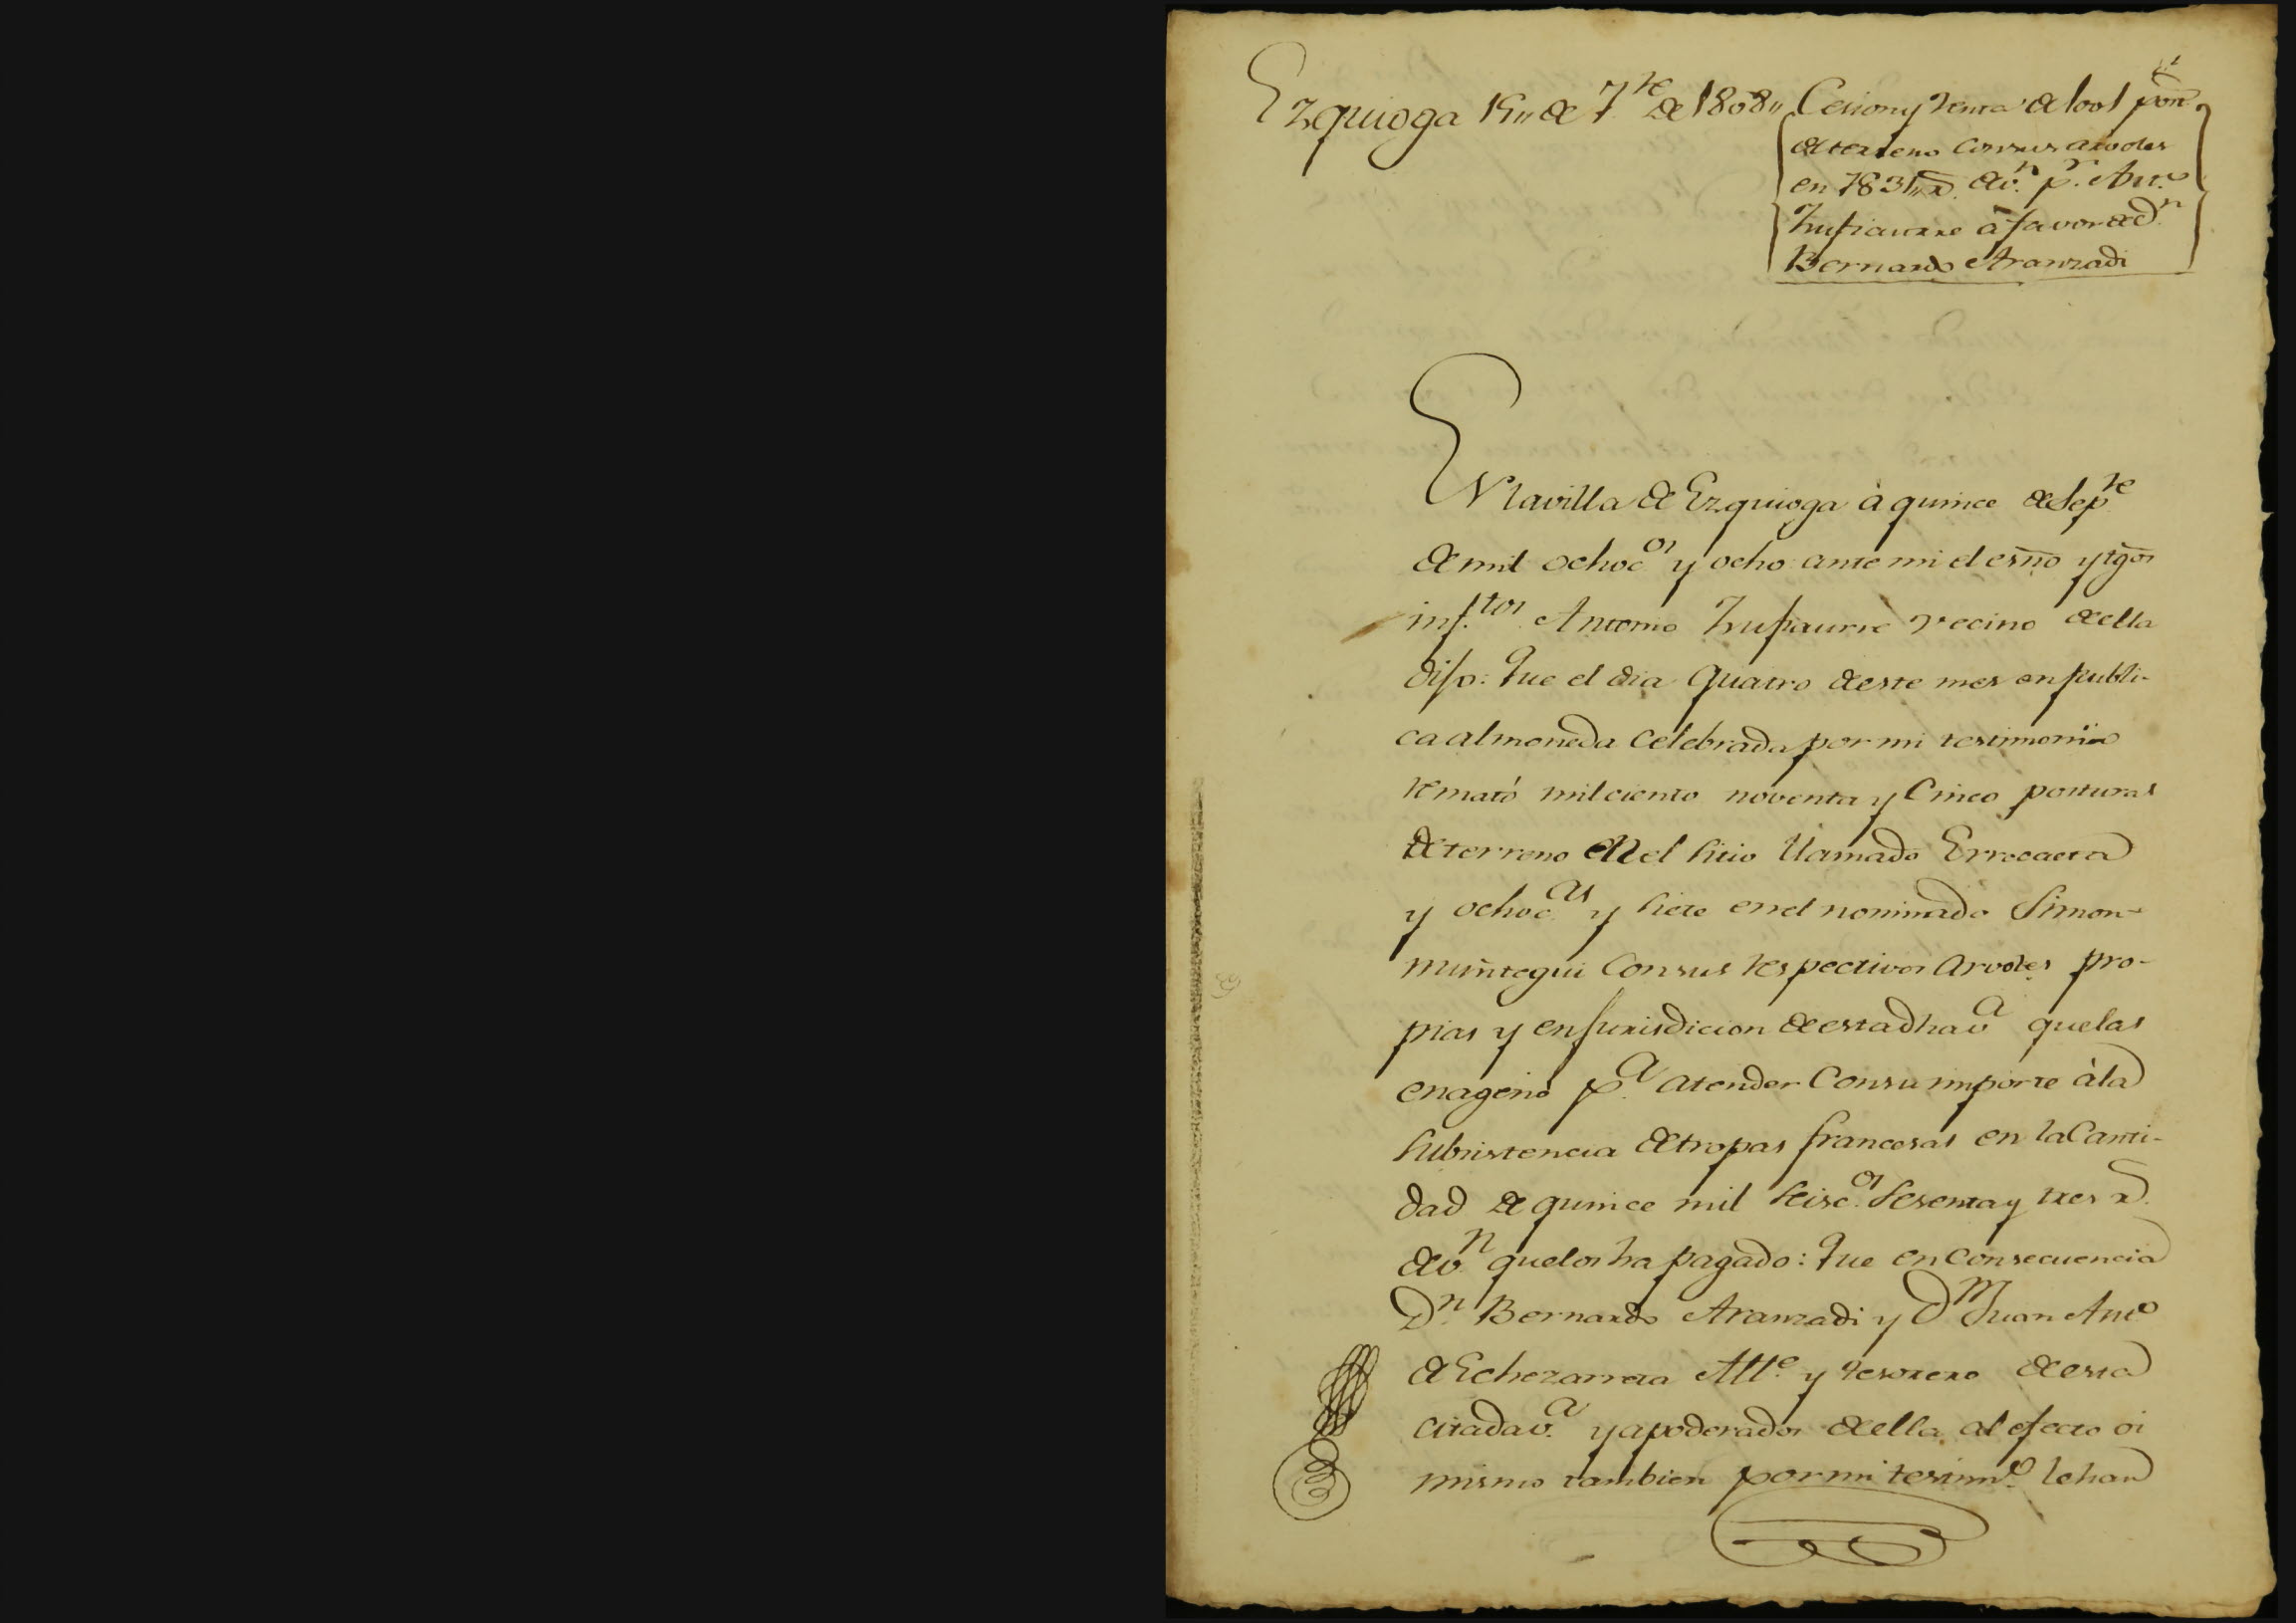 Ezquioga 15,, de 7.re de 1808,,
Cesion y venta de 1001 pon.s
de terreno con sus arvoles
en 7831,, r.s de v.n p.r Ant.o
Insiaurre à favor de D.n
Bernardo Aranzadi
EN la villa de Ezquioga à quince de Sep.re
de mil ochoc.os y ocho ante mi el esño y tgõs
inf.tos Antonio Insiaurre vecino de ella
dijo: Que el dia quatro de este mes en publi-
ca almoneda celebrada por mi testimonio
remató mil ciento noventa y cinco posturas
de terreno en el sitio llamado Errecaeta
y ochoc.as y siete en el nominado Simon-
muñtegui con sus respectivos arvoles pro-
pias y en jurisdicion de esta dha v.a que las
enagenò p.a atender con su importe à la
subsistencia de tropas francesas en la canti-
dad de quince mil seisc.os sesenta y tres r.s
de v.n que los ha pagado: Que en consecuencia
D.n Bernardo Aranzadi y D.n Juan Ant.o
de Echezarreta Alc.e y tesorero de esta
citada v.a y apoderados de ella al efecto oi
mismo tambien por mi testim.o le han